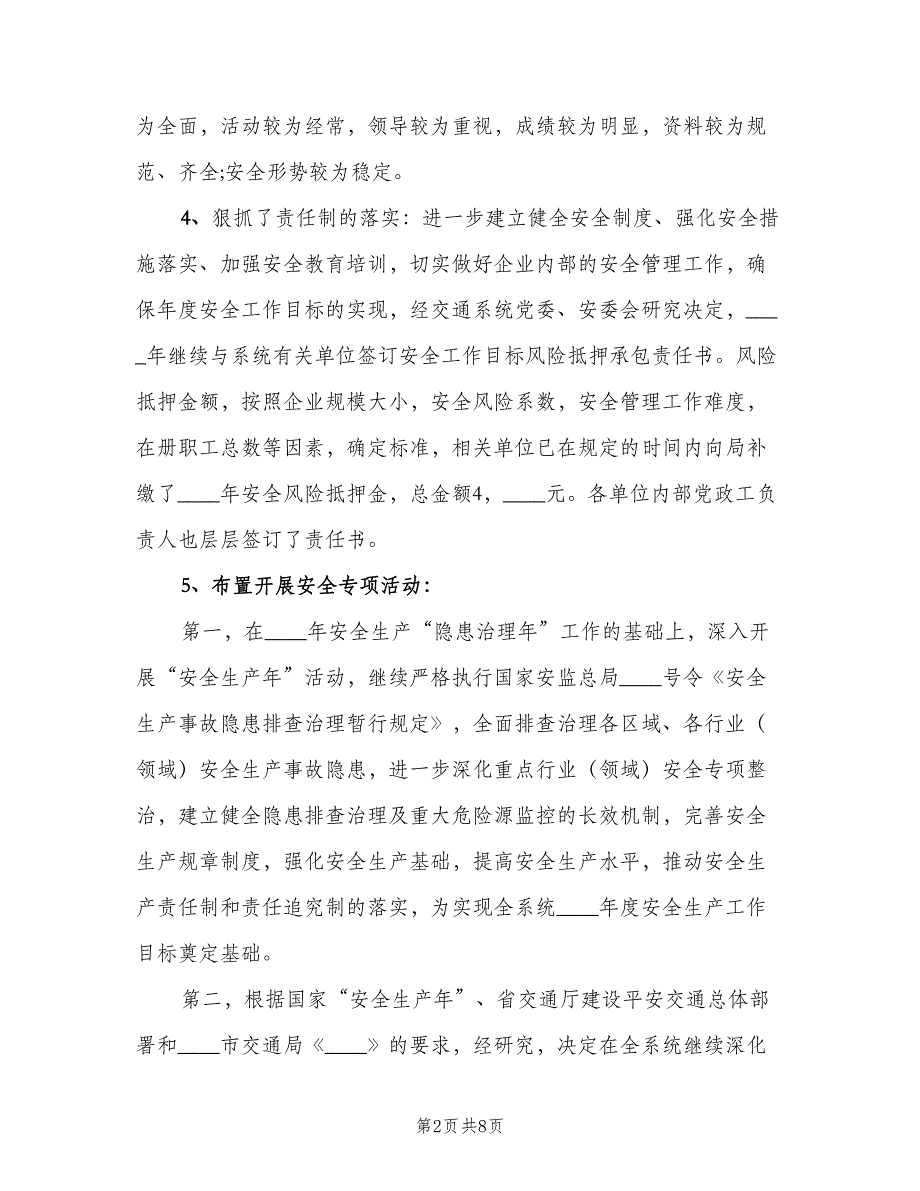 为全面，活动较为经常，领导较为重视，成绩较为明显，资料较为规
范、齐全;安全形势较为稳定。
4、狠抓了责任制的落实：进一步建立健全安全制度、强化安全措
施落实、加强安全教育培训，切实做好企业内部的安全管理工作，确
保年度安全工作目标的实现，经交通系统党委、安委会研究决定，___
_年继续与系统有关单位签订安全工作目标风险抵押承包责任书。风险
抵押金额，按照企业规模大小，安全风险系数，安全管理工作难度，
在册职工总数等因素，确定标准，相关单位已在规定的时间内向局补
缴了____年安全风险抵押金，总金额4，____元。各单位内部党政工负
责人也层层签订了责任书。
5、布置开展安全专项活动：
第一，在____年安全生产“隐患治理年”工作的基础上，深入开
展“安全生产年”活动，继续严格执行国家安监总局____号令《安全
生产事故隐患排查治理暂行规定》，全面排查治理各区域、各行业（
领域）安全生产事故隐患，进一步深化重点行业（领域）安全专项整
治，建立健全隐患排查治理及重大危险源监控的长效机制，完善安全
生产规章制度，强化安全生产基础，提高安全生产水平，推动安全生
产责任制和责任追究制的落实，为实现全系统____年度安全生产工作
目标奠定基础。
第二，根据国家“安全生产年”、省交通厅建设平安交通总体部
署和____市交通局《____》的要求，经研究，决定在全系统继续深化
第2页 共8页